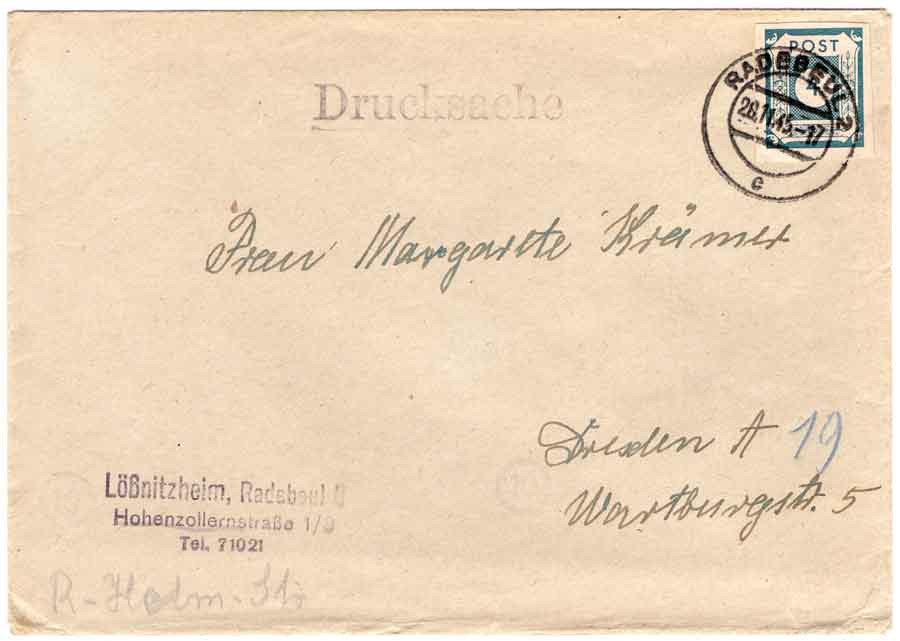 Drucksache
POST
RADEBEUL 2
28.11.45-17
c
Frau Margarete Krämer
Dresden A 19
Wartburgstr. 5
Lößnitzheim, Radebeul
Hohenzollernstraße 1/3
Tel. 71021